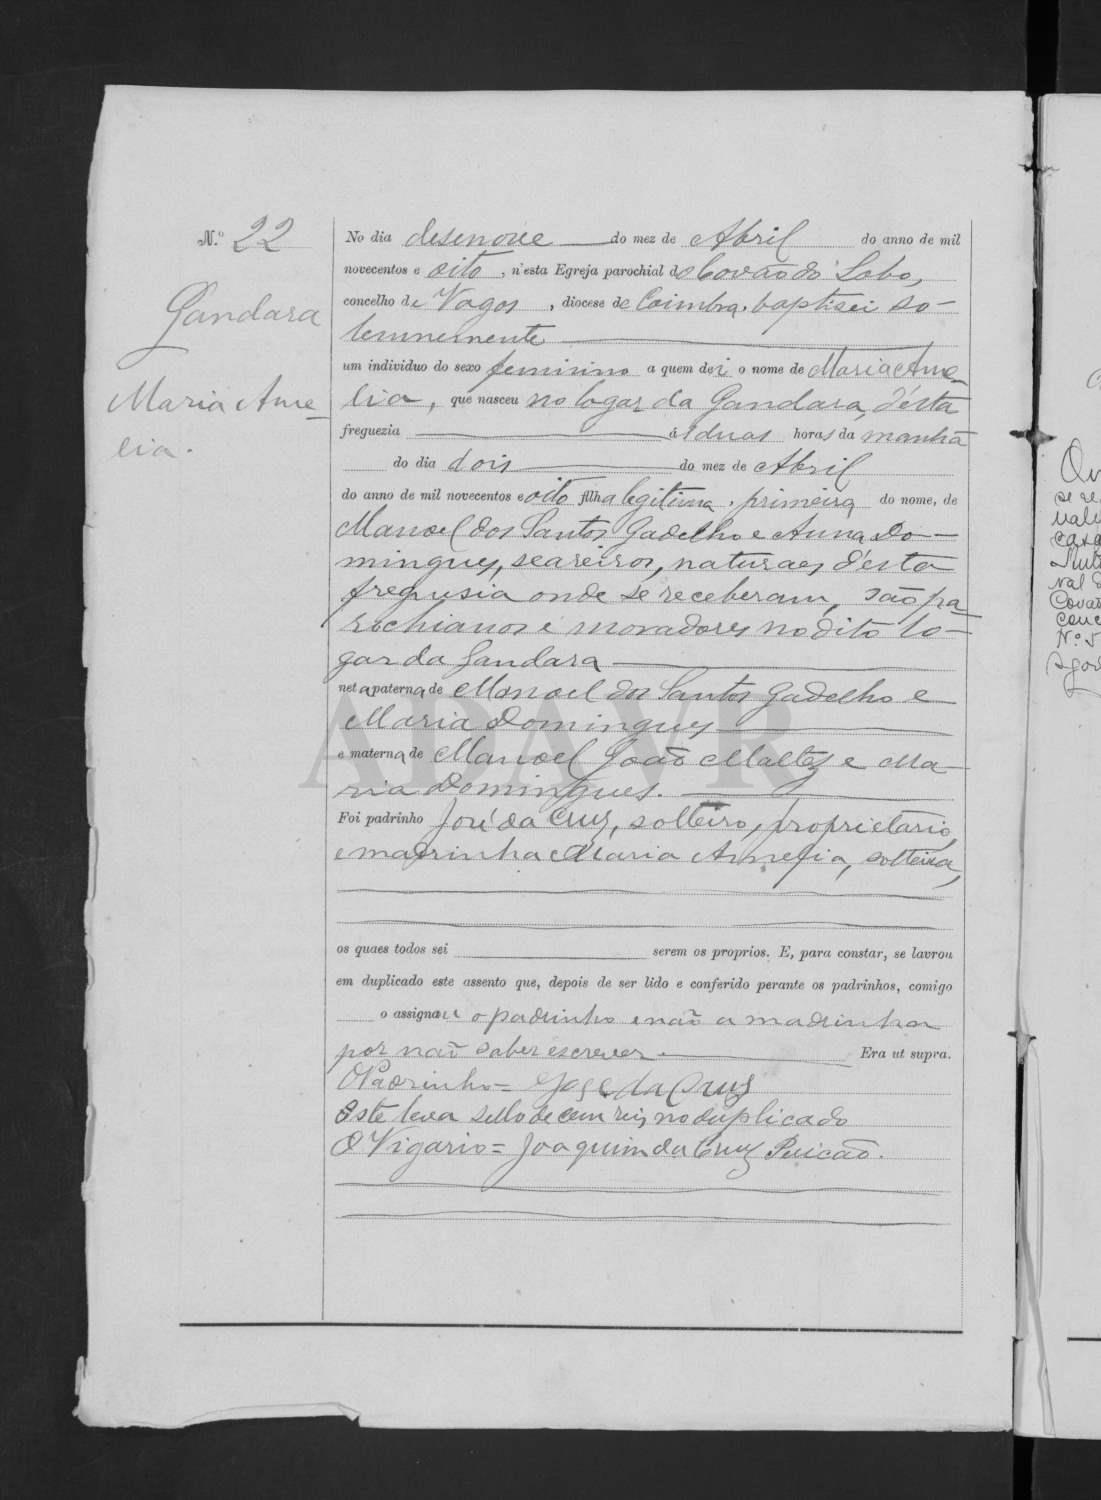 N.º 22
Gandara
Maria Ame-
lia.
No dia desenove do mez de Abril do anno de mil
novecentos e oito, n'esta Egreja parochial do Covão do Lobo,
concelho de Vagos, diocese de Coimbra, baptisei so-
lemnemente
um individuo do sexo feminino a quem dei o nome de Maria Ame-
lia, que nasceu no logar da Gandara, d'esta
freguezia ás duas horas da manhã
do dia dois do mez de Abril
do anno de mil novecentos e oito filha legitima, primeira do nome, de
Manoel dos Santos Gadelho e Anna Do-
mingues, seareiros, naturaes d'esta
freguesia onde se receberam, são pa-
rochianos e moradores no dito lo-
gar da Gandara
neta paterna de Manoel dos Santos Gadelho e
Maria Domingues
e materna de Manoel João Maltez e Ma-
ria Domingues.
Foi padrinho José da Cruz, solteiro, proprietario,
e madrinha Maria Amelia, solteira,
os quaes todos sei serem os proprios. E, para constar, se lavrou
em duplicado este assento que, depois de ser lido e conferido perante os padrinhos, comigo
o assignou o padrinho e não a madrinha
por não saber escrever. Era ut supra.
O Padrinho = Jose da Cruz
Este leva sello de cem reis no duplicado
O Vigario = Joaquim da Cruz
ADAVR